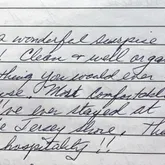 a wonderful surprise
! Clean & well organ
thing you would ever
use. Most comfortable
I've ever stayed at
e Jersey Shore. Tha
hospitality!!